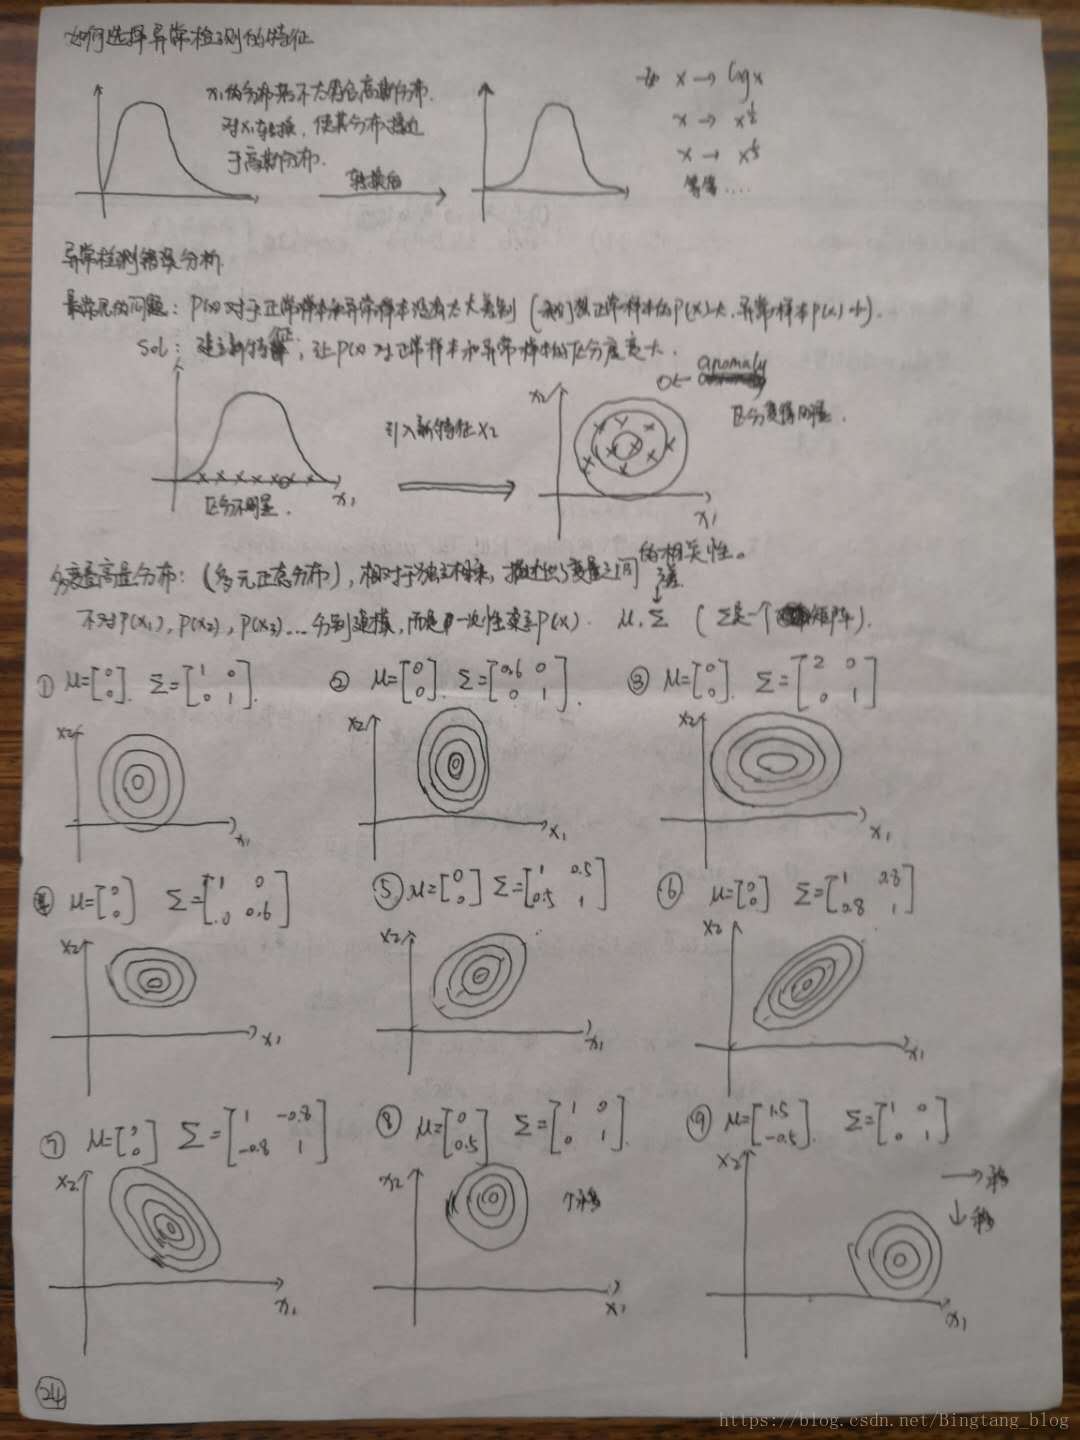 如何选择异常检测的特征
x₁的分布若不太符合高斯分布.
对x₁转换，使其分布接近
于高斯分布.
转换后
如 x → log x
x → x^½
x → x^⅓
等等....
异常检测错误分析
最常见的问题：P(x)对于正常样本和异常样本没有太大差别（我们想正常样本的P(x)大，异常样本P(x)小).
Sol：建立新特征，让P(x)对正常样本和异常样本的区分度变大.
x₁
区分不明显.
引入新特征x₂
x₂
x₁
anomaly
区分变得明显.
多变量高斯分布：(多元正态分布)，相对于独立, 描述了变量之间的相关性。
不对P(x₁), P(x₂), P(x₃)...分别建模，而是一次性建立P(x). μ, Σ (Σ是一个矩阵).
① μ=[0 0]. Σ=[1 0 0 1].
② μ=[0 0]. Σ=[0.6 0 0 1].
③ μ=[0 0]. Σ=[2 0 0 1]
x₂
x₁
x₂
x₁
x₂
x₁
④ μ=[0 0] Σ=[1 0 0 0.6]
⑤ μ=[0 0] Σ=[1 0.5 0.5 1]
⑥ μ=[0 0] Σ=[1 0.8 0.8 1]
x₂
x₁
x₂
x₁
x₂
x₁
⑦ μ=[0 0] Σ=[1 -0.8 -0.8 1]
⑧ μ=[0 0.5] Σ=[1 0 0 1].
⑨ μ=[1.5 -0.5]. Σ=[1 0 0 1]
x₂
x₁
x₂
↑移
x₁
x₂
→移
↓移
x₁
24
https://blog.csdn.net/Bingtang_blog